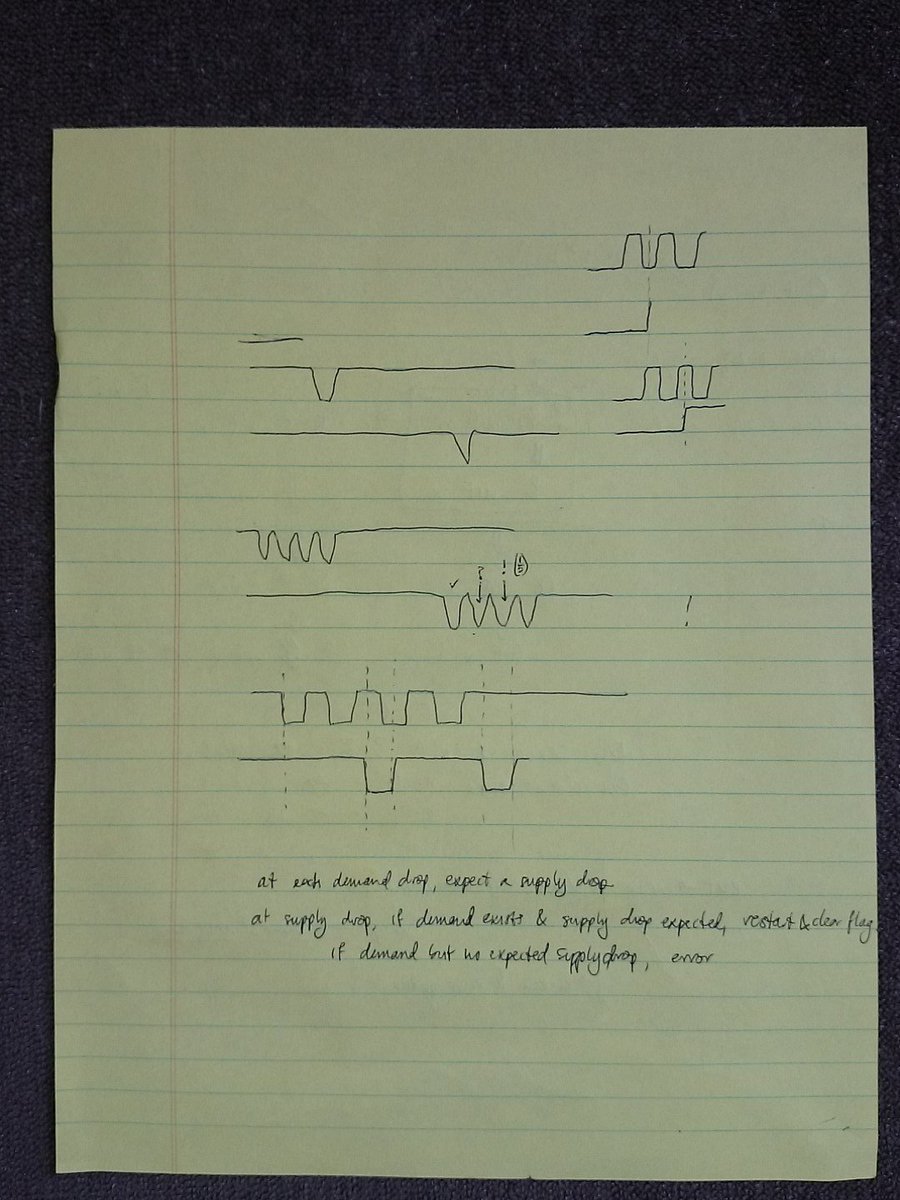 ✓ ? ! (1/5)
!
at each demand drop, expect a supply drop
at supply drop, if demand exists & supply drop expected, restart & clear flag.
if demand but no expected supply drop, error